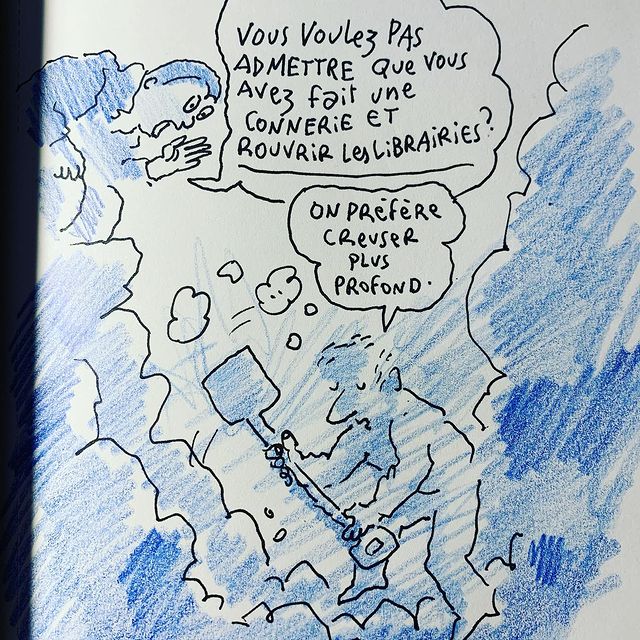 VOUS VOULEZ PAS
ADMETTRE QUE VOUS
AVEZ FAIT UNE
CONNERIE ET
ROUVRIR LES LIBRAIRIES?
ON PRÉFÈRE
CREUSER
PLUS
PROFOND.